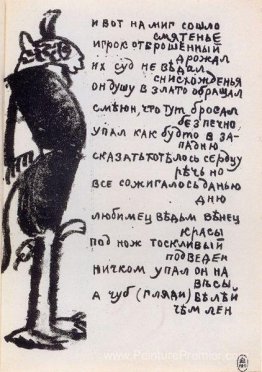 и вот на миг сошло
смятенье
игрок отброшенный
дрожал
их суд не вѣдал
снисхожденья
он душу в злато обращал
смѣюн, что тут бросал
безпечно,
упал как будто в за-
падню
сказать хотѣлось сердцу
рѣчь но
все сожигалось данью
дню
любимец вѣдьм вѣнец
красы
под нож тоскливый
подведен
ничком упал он на
вѣсы
а чуб (гляди) вѣлѣй
чѣм лен
www.PeinturePremier.com